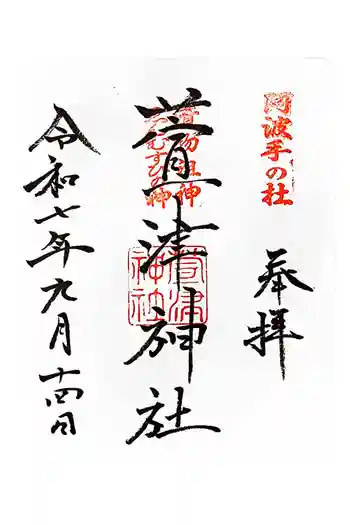 阿波手の杜
奉拝
漬物祖神
えんむすびの神
萱津神社
萱津神社
令和七年九月十四日